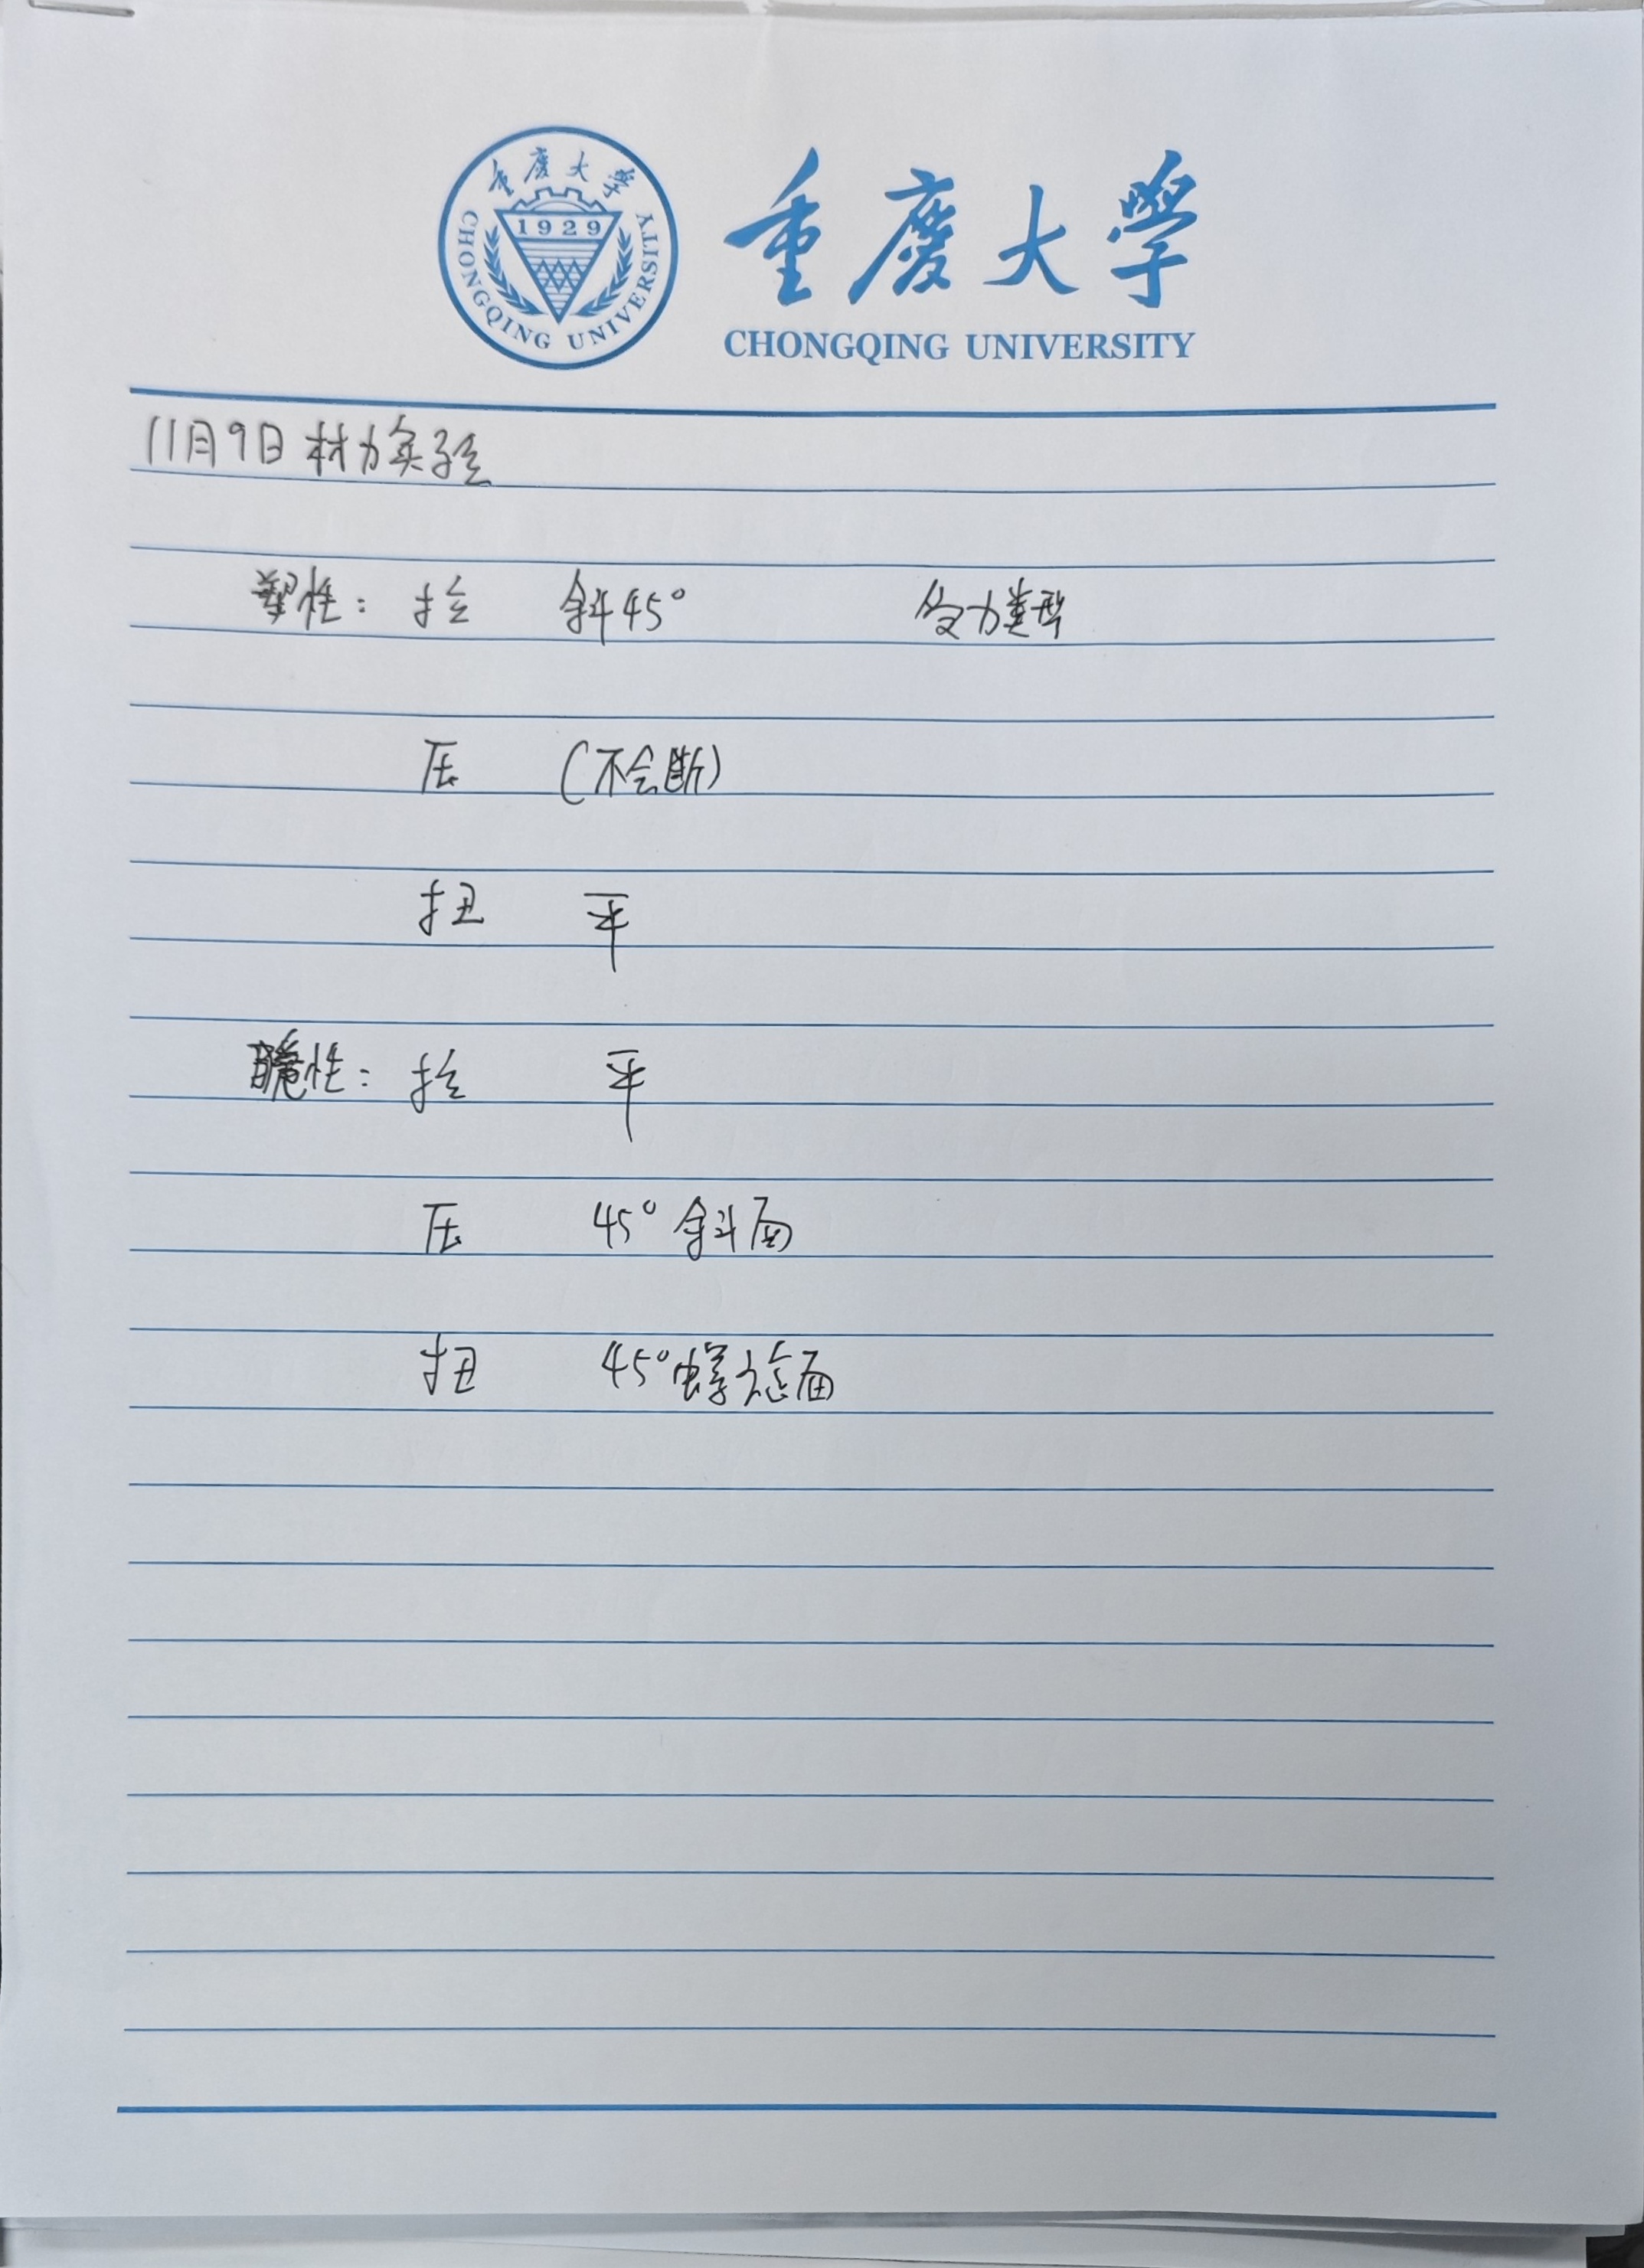 重慶大學
1929
CHONGQING UNIVERSITY
重慶大學
CHONGQING UNIVERSITY
11月9日 材力实验
塑性： 拉 斜45° 受力类型
压 （不会断）
扭 平
脆性： 拉 平
压 45°斜面
扭 45°螺旋面